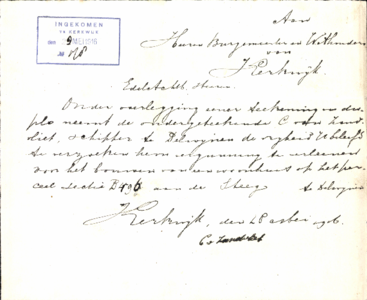 Aan
INGEKOMEN
TE KERKWIJK
Heeren Burgemeester en Wethouders
9 MEI 1916
van
Kerkwijk.
Edelachtb. Heeren
Onder overlegging eener teekening in du-
plo neemt de ondergeteekende C van Zand-
vliet, schipper te Delwijnen de vrijheid UEd
te verzoeken hem vergunning te verleenen
voor het bouwen van een woonhuis op het per-
ceel sectie B aan de Steeg te Delwijnen
Kerkwijk, den
C v Zandvliet